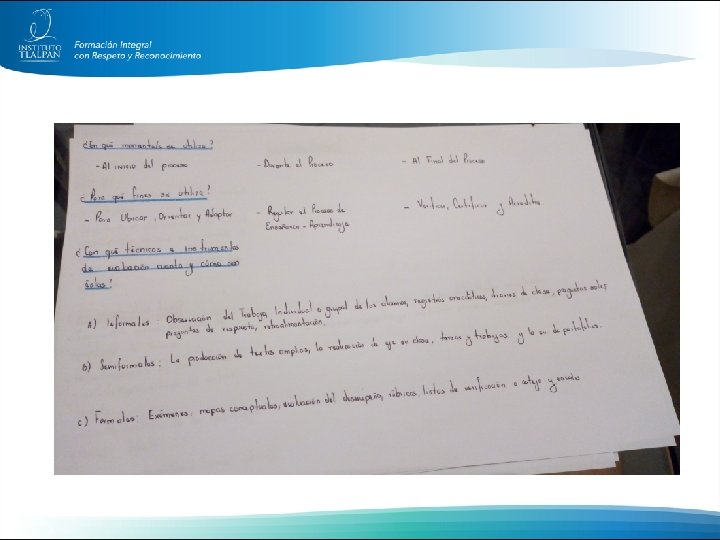 INSTITUTO
TLALPAN
Formación Integral
con Respeto y Reconocimiento
¿En qué momento/s se utiliza?
- Al inicio del proceso - Durante el Proceso - Al Final del Proceso
¿Para qué fines se utiliza?
- Para Ubicar, Orientar y Adaptar - Regular el Proceso de - Verificar, Certificar y Acreditar.
Enseñanza - Aprendizaje
¿Con qué técnicas e instrumentos
de evaluación cuenta y cómo son
éstas?
A) Informales: Observación del Trabajo Individual o grupal de los alumnos, registros anecdóticos, diarios de clase, preguntas orales
preguntas de respuesta, retroalimentación.
b) Semiformales: La producción de textos amplios, la realización de eje en clase, tareas y trabajos y la ev. de portafolios.
c) Formales: Exámenes, mapas conceptuales, evaluación del desempeño, rúbricas, listas de verificación o cotejo y